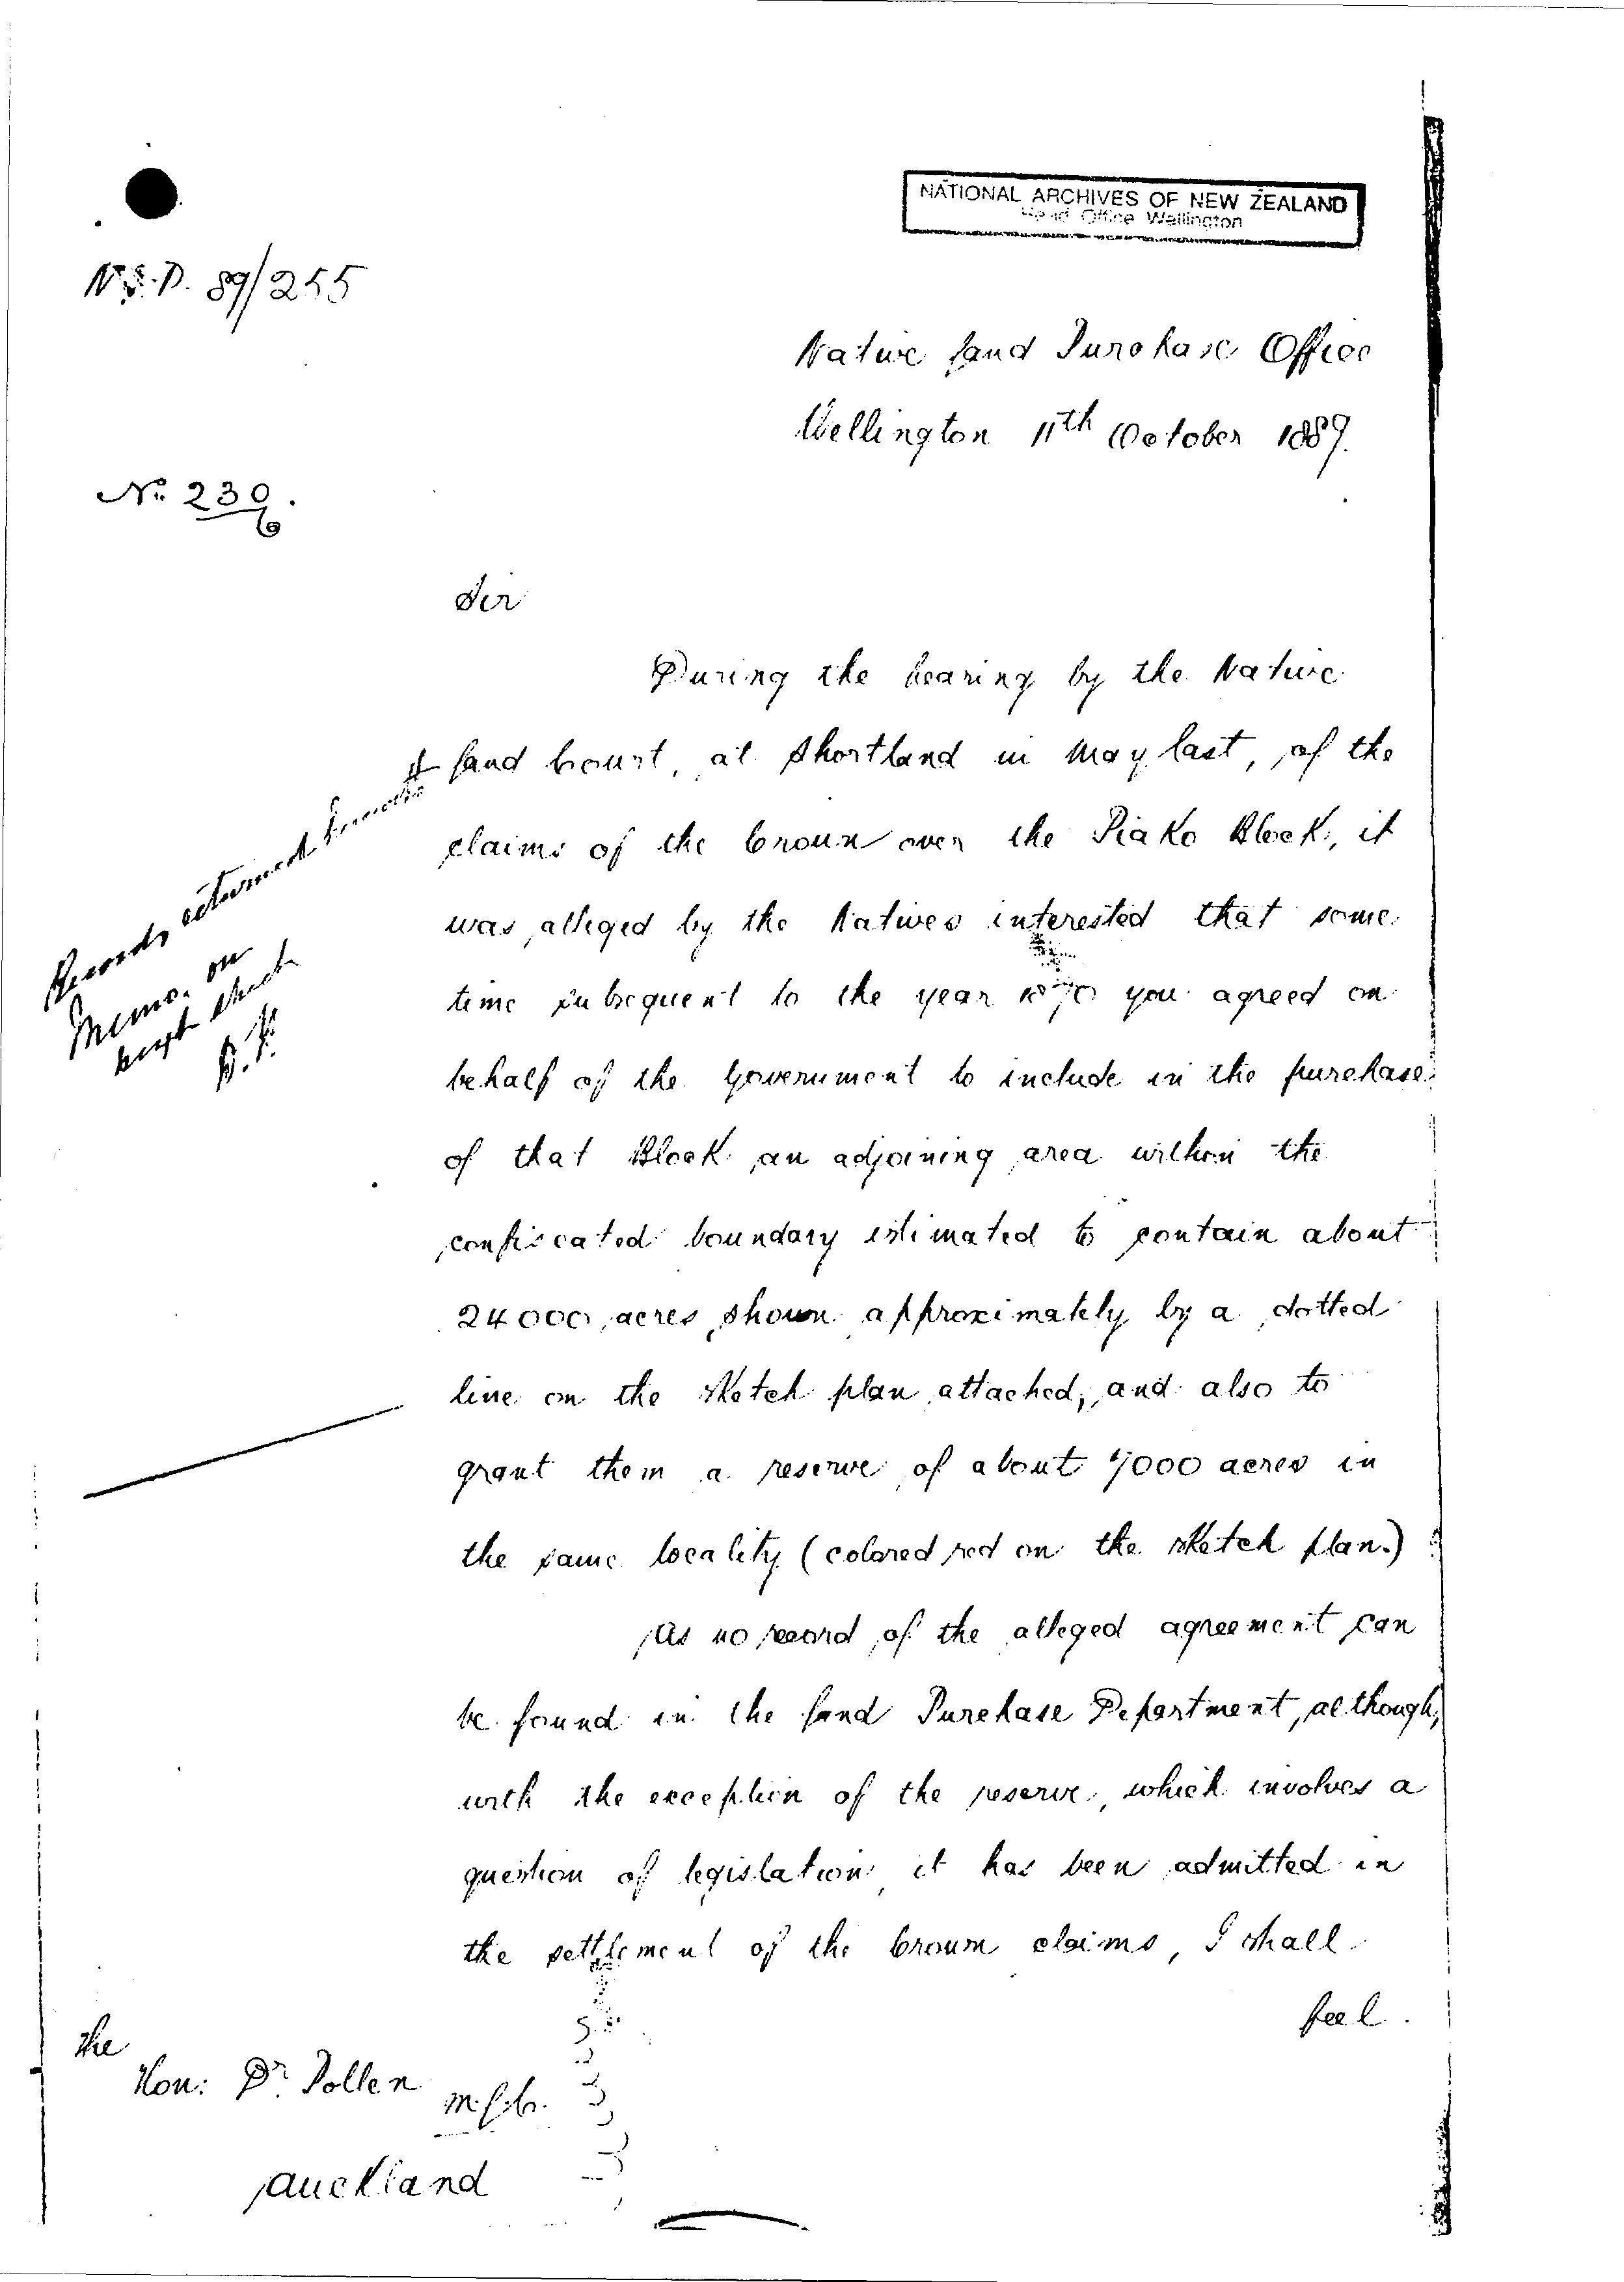 NATIONAL ARCHIVES OF NEW ZEALAND
Head Office Wellington
N.L.P. 89/255
Native Land Purchase Office
Wellington 11th October 1889.
No. 230.
6
Sir
During the hearing by the Native
Land Court, at Shortland in May last, of the
claims of the Crown over the Piako Block, it
was alleged by the Natives interested that some
time subsequent to the year 1870 you agreed on
behalf of the Government to include in the purchase
of that Block an adjoining area within the
confiscated boundary estimated to contain about
24000 acres shown approximately by a dotted
line on the sketch plan attached, and also to
grant them a reserve of about 7000 acres in
the same locality (colored red on the sketch plan.)
As no record of the alleged agreement can
be found in the Land Purchase Department, although,
with the exception of the reserve, which involves a
question of legislation, it has been admitted in
the settlement of the Crown claims, I shall
feel
Records returned
Memo. on
next sheet
The
Hon: Dr. Pollen
M.L.C.
Auckland